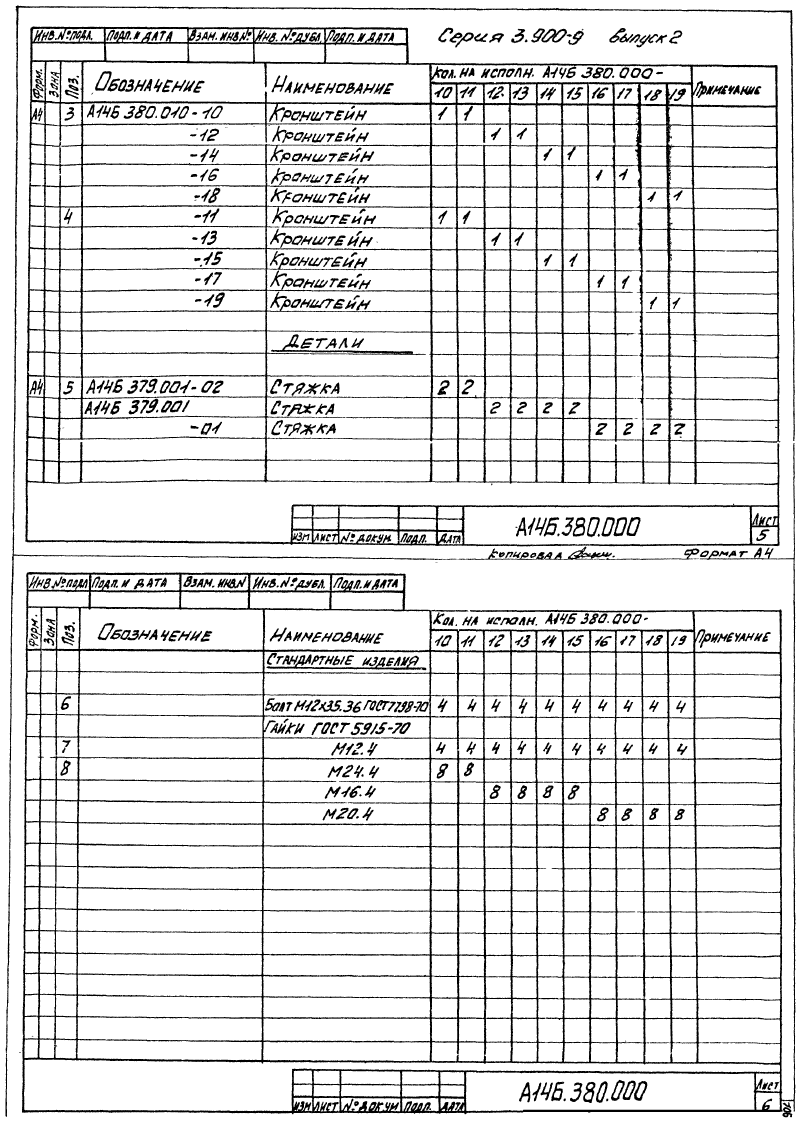 Серия 3.900-9 Выпуск 2
ИНВ.№ПОДЛ. ПОДП. И ДАТА ВЗАМ. ИНВ.№ ИНВ. №ДУБЛ. ПОДП. И ДАТА
ФОРМ. ЗОНА ПОЗ. ОБОЗНАЧЕНИЕ НАИМЕНОВАНИЕ КОЛ. НА ИСПОЛН. А14Б 380.000- ПРИМЕЧАНИЕ
10 11 12 13 14 15 16 17 18 19
А4 3 А14Б 380.010-10 КРОНШТЕЙН 1 1
-12 КРОНШТЕЙН 1 1
-14 КРОНШТЕЙН 1 1
-16 КРОНШТЕЙН 1 1
-18 КРОНШТЕЙН 1 1
4 -11 КРОНШТЕЙН 1 1
-13 КРОНШТЕЙН 1 1
-15 КРОНШТЕЙН 1 1
-17 КРОНШТЕЙН 1 1
-19 КРОНШТЕЙН 1 1
ДЕТАЛИ
А4 5 А14Б 379.001-02 СТЯЖКА 2 2
А14Б 379.001 СТЯЖКА 2 2 2 2
-01 СТЯЖКА 2 2 2 2
А14Б.380.000
ЛИСТ
5
ИЗМ ЛИСТ №ДОКУМ. ПОДП. ДАТА
КОПИРОВАЛ ФОРМАТ А4
ИНВ.№ПОДЛ ПОДП. И ДАТА ВЗАМ. ИНВ.№ ИНВ.№ДУБЛ. ПОДП. И ДАТА
ФОРМ. ЗОНА ПОЗ. ОБОЗНАЧЕНИЕ НАИМЕНОВАНИЕ КОЛ. НА ИСПОЛН. А14Б 380.000- ПРИМЕЧАНИЕ
10 11 12 13 14 15 16 17 18 19
СТАНДАРТНЫЕ ИЗДЕЛИЯ
6 БОЛТ М12×35.36 ГОСТ 7798-70 4 4 4 4 4 4 4 4 4 4
ГАЙКИ ГОСТ 5915-70
7 М12.4 4 4 4 4 4 4 4 4 4 4
8 М24.4 8 8
М16.4 8 8 8 8
М20.4 8 8 8 8
А14Б.380.000
ЛИСТ
6
ИЗМ ЛИСТ №ДОКУМ ПОДП. ДАТА